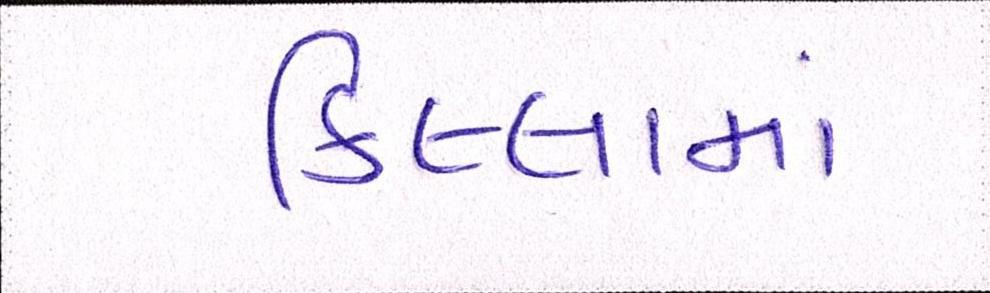 કિલ્લામાં